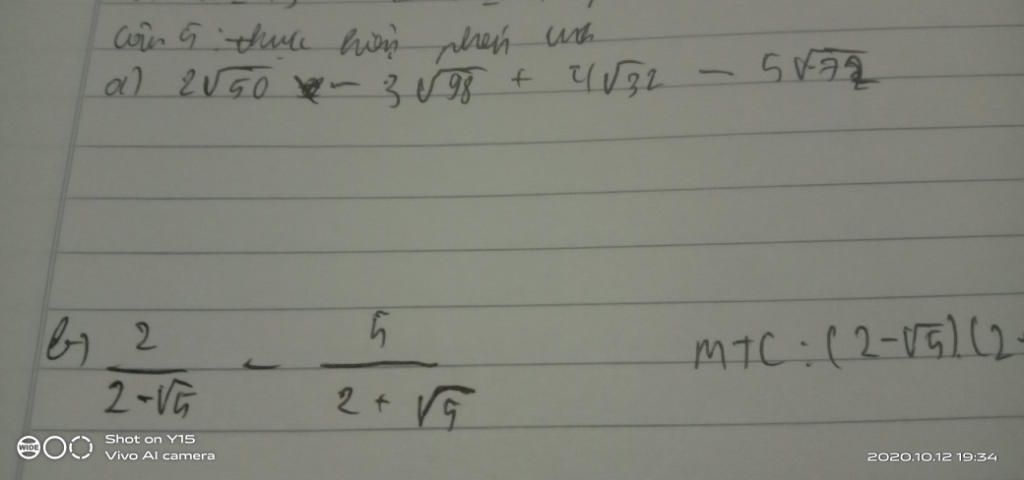 câu 5: thực hiện phép tính
a) 2√50 - 3√98 + 4√32 - 5√72
b) 2/(2-√5) - 5/(2+√5) MTC: (2-√5).(2
WIDE
Shot on Y15
Vivo AI camera
2020.10.12 19:34